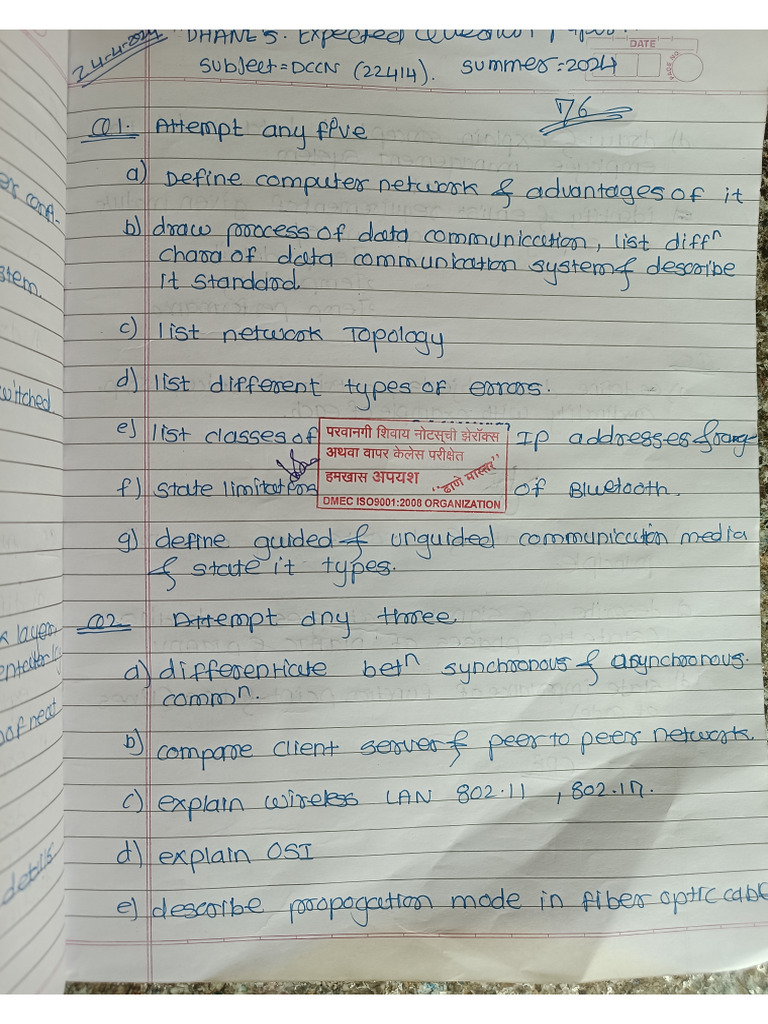 24-4-2024
DHANE'S. Expected Question Paper
DATE
PAGE NO.
Subject = DCCN (22414). Summer = 2024
76
Q1. Attempt any five
a) Define computer network & advantages of it
b) draw process of data communiccation, list diffn
chara of data communication system & describe
it standard.
c) list network Topology
d) list different types of errors.
e) list classes of IP addresses & rang-
परवानगी शिवाय नोटस्ची झेरॉक्स
अथवा वापर केलेस परीक्षेत
हमखास अपयश
"ढाणे मास्तर"
DMEC ISO9001:2008 ORGANIZATION
f) State limitations of Bluetooth.
g) define guided & unguided communiccation media
& state it types.
Q2 Attempt any three
a) differentiate betn synchronous & asynchronous.
commn.
b) compare client server & peer to peer network.
c) explain wireless LAN 802.11 , 802.1n.
d) explain OSI
e) describe propogation mode in fiber optic cable
er conf-
stem.
witched
k layer
of neat
details